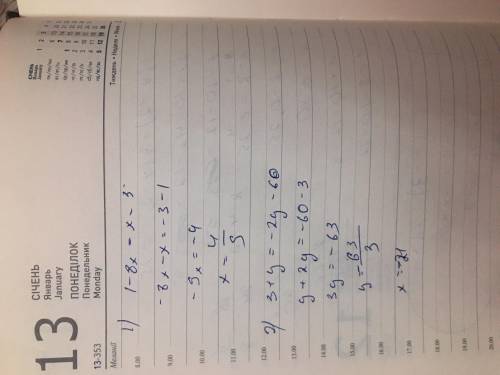 13
СІЧЕНЬ
Январь
January
ПОНЕДІЛОК
Понедельник
Monday
13-353
Тиждень • Неделя • Week
8.00
9.00
10.00
11.00
12.00
13.00
14.00
15.00
16.00
17.00
18.00
19.00
20.00
1) 1-8x-x=3
-8x-x=-3-1
-9x=-4
x=4/9
2) 3+y=-2y-60
y+2y=-60-3
3y=-63
y=-63/3
x=-21